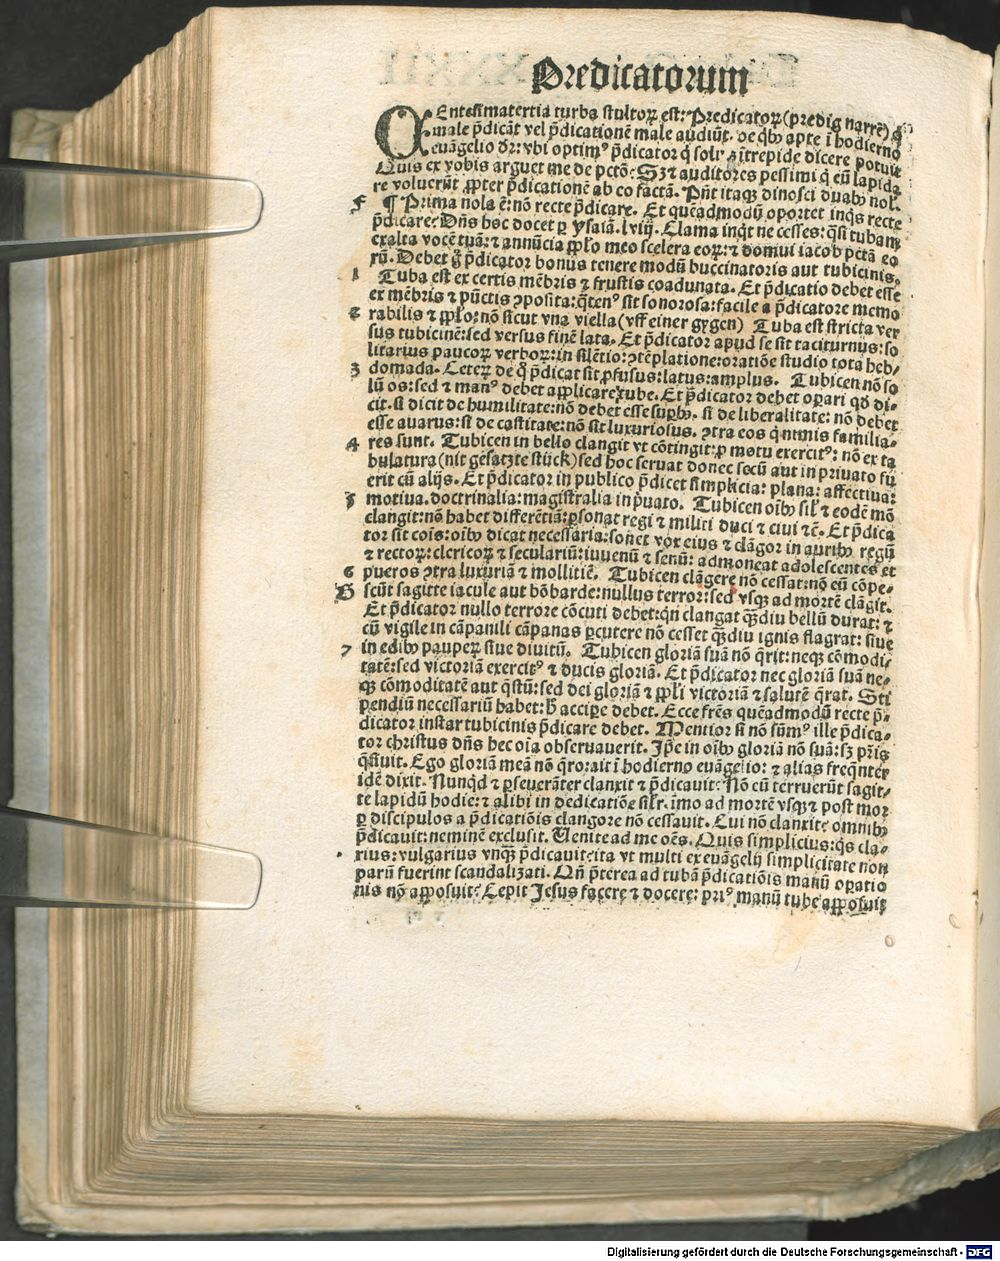 Predicatorum
CEntesimatertia turba stultoꝝ est: Predicatoꝝ (predig narrē) q̄
male p̄dicāt vel p̄dicationē male audiūt. de qb̄ꝰ apte ī hodierno
euāgelio dr̄: vbi optimꝰ p̄dicator q̄ solꝰ ⁊ ītrepide dicere potuit
Quis ex vobis arguet me de pctō: Sꝫ ⁊ auditores pessimi q̄ eū lapida
re volucrūt ꝓpter p̄dicationē ab eo factā. Pn̄t itaqꝫ dinosci duabꝰ nol.
F ¶ Prima nola ē: nō recte p̄dicare. Et quēadmodū oportet inqͥs recte
p̄dicare: Dn̄s hoc docet ꝑ ysaiā. lviij. Clama inqͥt ne cesses: qͣsi tubam
exalta vocē tuā: ⁊ annūcia ꝓplo meo scelera eoꝝ: ⁊ domui iacob pctā eo
rū. Debet ḡ p̄dicator bonus tenere modū buccinatoris aut tubicinis.
1 Tuba est ex certis mēbris ⁊ frustis coadunata. Et p̄dicatio debet esse
ex mēbris ⁊ pūctis ꝯposita: qͣtenꝰ sit sonorosa: facile a p̄dicatore memo
2 rabilis ⁊ ꝓplo: nō sicut vna viella (vff einer gygen) Tuba est stricta ver
sus tubicinē: sed versus finē lata. Et p̄dicator apud se sit taciturnus: so
litarius paucoꝝ verboꝝ: in silētio: ꝯtēplatione: oratiōe studio tota heb/
3 domada. Ceteꝝ de q̄ p̄dicat sit ꝓfusus: latus: amplus. Tubicen nō so
lū os: sed ⁊ manꝰ debet applicare tube. Et p̄dicator debet opari qd̄ di-
cit. si dicit de humilitate: nō debet esse suꝑbꝰ. si de liberalitate: nō debet
esse auarus: si de castitate: nō sit luxuriosus. ꝯtra eos q̄ nimis familia-
4 res sunt. Tubicen in bello clangit vt cōtingit: ꝓ motu exercitꝰ: nō ex ta
bulatura (nit gesatzte stück) sed hoc seruat donec secū aut in priuato fu
erit cū alijs. Et p̄dicator in publico p̄dicet simplicia: plana: affectiua:
5 motiua. doctrinalia: magistralia in p̄uato. Tubicen oībꝰ silr̄ ⁊ eodē mō
clangit: nō habet differētiā: ꝑsonat regi ⁊ militi duci ⁊ ciui ⁊c̄. Et p̄dica
tor sit cōis: oībꝰ dicat necessaria: sonet vox eius ⁊ clāgor in auribꝰ regū
⁊ rectoꝝ: clericoꝝ ⁊ seculariū: iuuenū ⁊ senū: admoneat adolescentes et
6 pueros ꝯtra luxuriā ⁊ mollitiē. Tubicen clāgere nō cessat: nō eū cōpe-
G scūt sagitte iacule aut bōbarde: nullus terror: sed vsqꝫ ad mortē clāgit.
Et p̄dicator nullo terrore cōcuti debet: qn̄ clangat qͣdiu bellū durat: ⁊
cū vigile in cāpanili cāpanas ꝑcutere nō cesset qͣdiu ignis flagrat: siue
7 in edibꝰ pauperū siue diuitū. Tubicen gloriā suā nō qͥrit: neqꝫ cōmodi-
tatē: sed victoriā exercitꝰ ⁊ ducis gloriā. Et p̄dicator nec gloriā suā ne-
qꝫ cōmoditatē aut qͣstū: sed dei gloriā ⁊ ꝓpli victoriā ⁊ salutē qͣrat. Sti
pendiū necessariū habet: hͦ accipe debet. Ecce frēs quēadmodū recte p̄-
dicator instar tubicinis p̄dicare debet. Mentior si nō sūmꝰ ille p̄dica-
tor christus dn̄s hec oīa obseruauerit. Ip̄e in oībꝰ gloriā nō suā: sꝫ pr̄is
qͣsiuit. Ego gloriā meā nō qͣro: ait ī hodierno euāgelio: ⁊ alias freqn̄ter
idē dixit. Nunqͥd ⁊ ꝑseuerāter clanxit ⁊ p̄dicauit: Nō eū terruerūt sagit-
te lapidū hodie: ⁊ alibi in dedicatiōe silr̄. imo ad mortē vsqꝫ ⁊ post mor
ꝑ discipulos a p̄dicatiōis clangore nō cessauit. Cui nō clanxit: omnibꝰ
p̄dicauit: neminē exclusit. Uenite ad me oēs. Quis simplicius: qͥs cla-
rius: vulgarius vnqͣ p̄dicauit: ita vt multi ex euāgelij simplicitate non
parū fuerint scandalizati. Qn̄ p̄terea ad tubā p̄dicatiōis manū opatio
nis nō apposuit: Cepit Jesus facere ⁊ docere: priꝰ manū tube apposuit
Digitalisierung gefördert durch die Deutsche Forschungsgemeinschaft - DFG